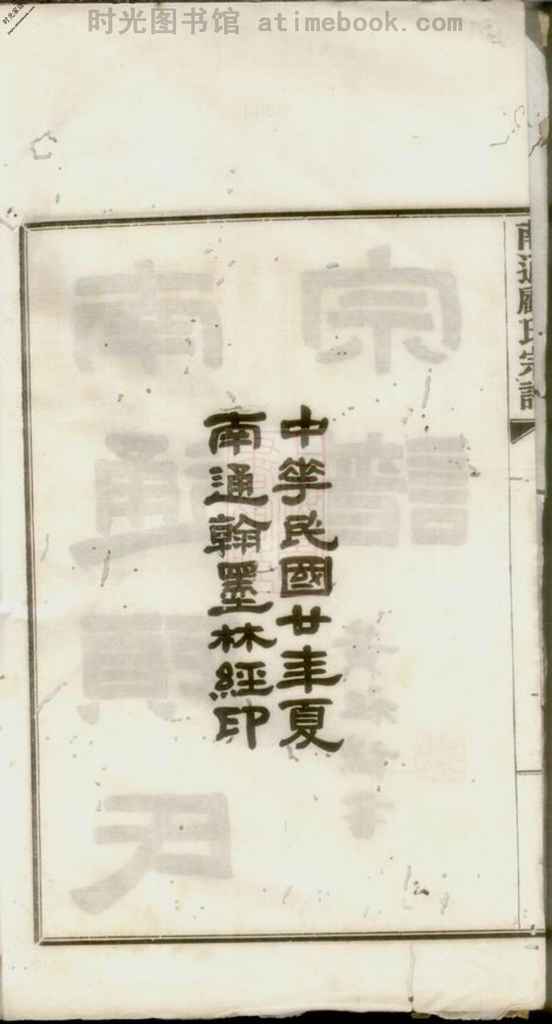 时光图书馆 atimebook.com
中華民國廿年夏
南通翰墨林經印
南通顧氏宗譜